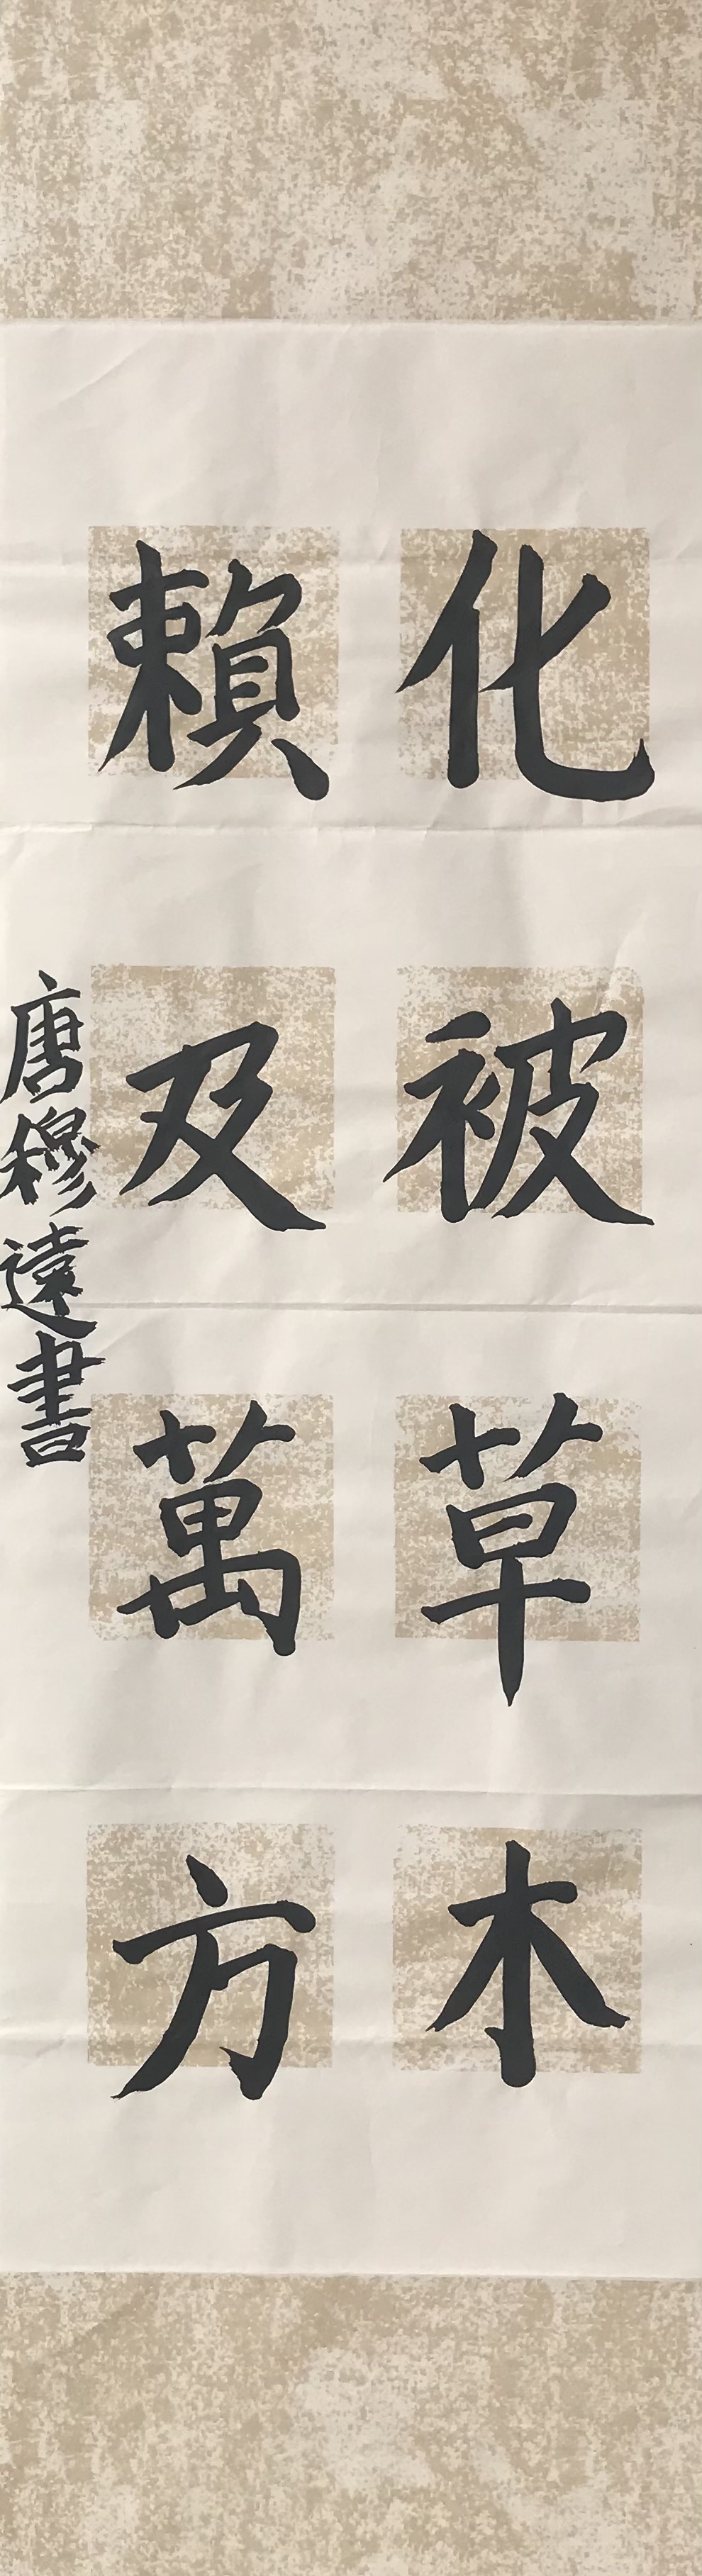 化被草木
賴及萬方
唐穆遠書